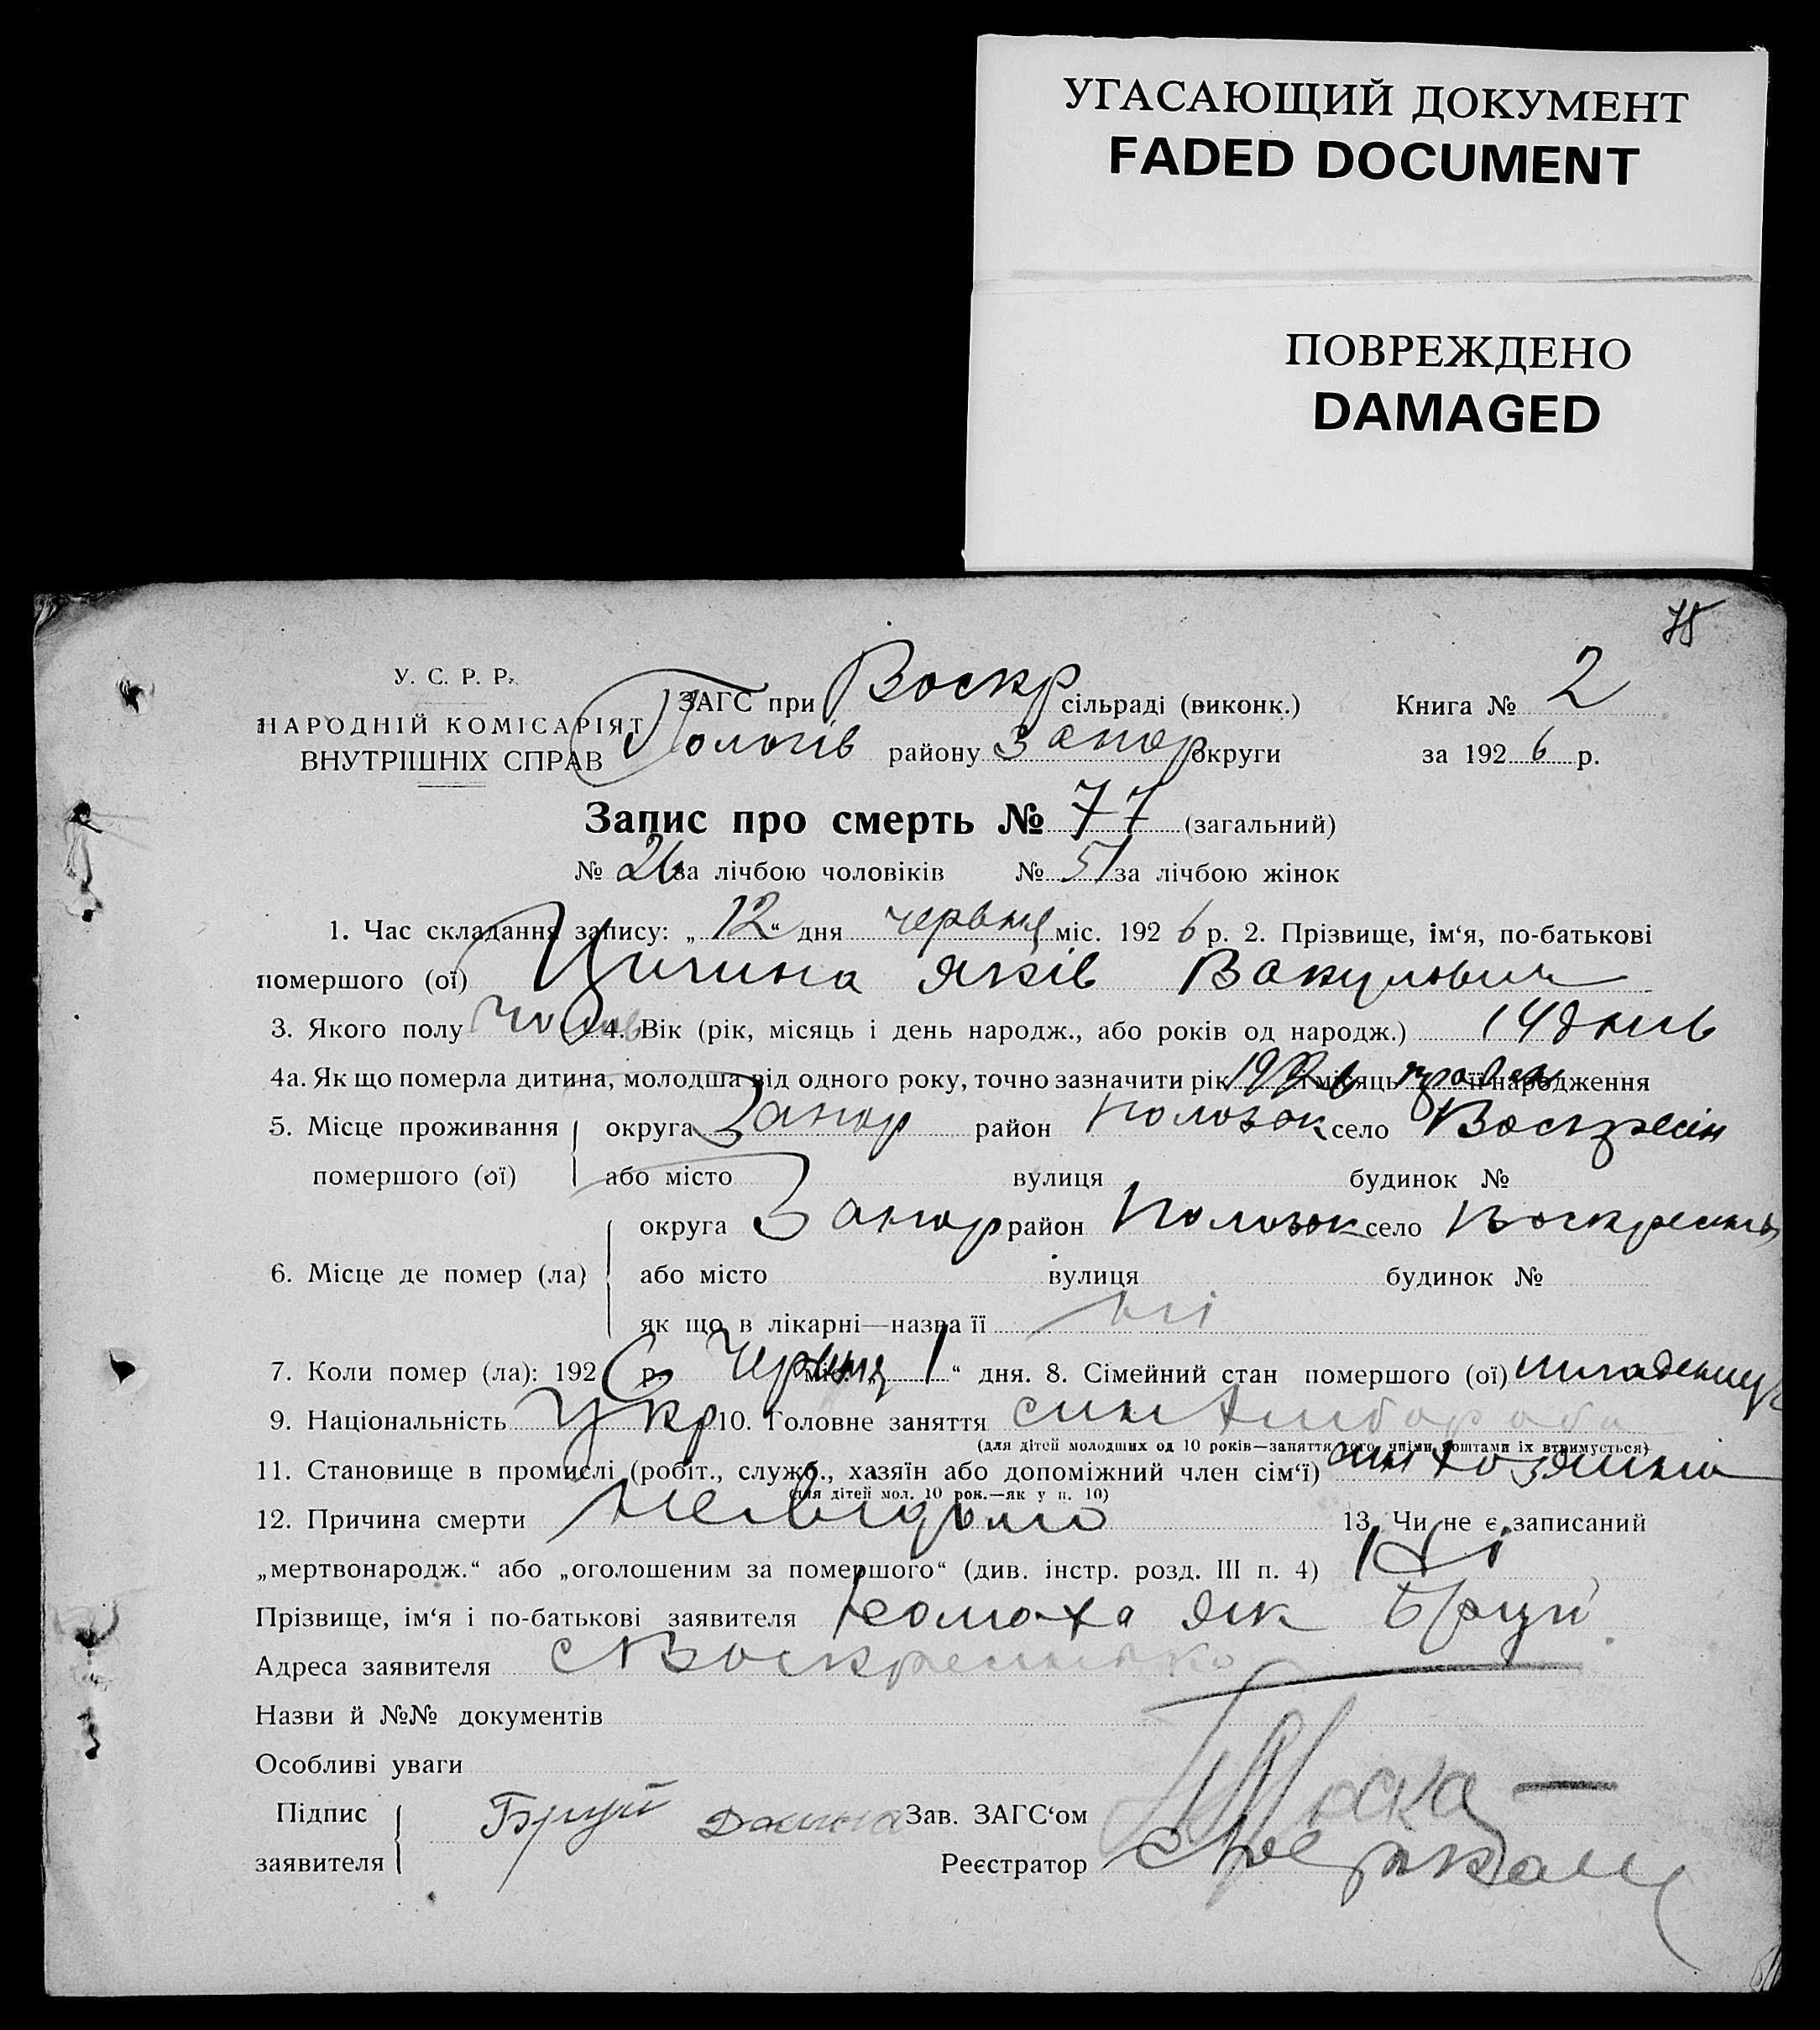 УГАСАЮЩИЙ ДОКУМЕНТ
FADED DOCUMENT
ПОВРЕЖДЕНО
DAMAGED
У. С. Р. Р.
НАРОДНІЙ КОМІСАРІЯТ
ВНУТРІШНІХ СПРАВ
ЗАГС при Воскр сільраді (виконк.) Книга № 2
Пологів району Запор округи за 1926 р.
Запис про смерть № 77 (загальний)
№ 26 за лічбою чоловіків № 51 за лічбою жінок
1. Час складання запису: „12“ дня червня міс. 1926 р. 2. Прізвище, ім‘я, по-батькові
помершого (ої) Яків Вакулович
3. Якого полу 4. Вік (рік, місяць і день народж., або років од народж.) 14 днів
4а. Як що померла дитина, молодша від одного року, точно зазначити рік 1926 і місяць її народження
5. Місце проживання округа Запор район село Воскресін
помершого (ої) або місто вулиця будинок №
округа Запор район село
6. Місце де помер (ла) або місто вулиця будинок №
як що в лікарні—назва її ні
7. Коли помер (ла): 1926 р. Червня міс. „1“ дня. 8. Сімейний стан помершого (ої) младенец
9. Національність Укр 10. Головне заняття син хлібороба
(для дітей молодших од 10 років—заняття того, чиїми коштами їх втримується)
11. Становище в промислі (робіт., служб., хазяїн або допоміжний член сім‘ї) син хозяина
(для дітей мол. 10 рок.—як у п. 10)
12. Причина смерти невидомо 13. Чи не є записаний
„мертвонародж.“ або „оголошеним за помершого“ (див. інстр. розд. III п. 4) Ні
Прізвище, ім‘я і по-батькові заявителя
Адреса заявителя с Воскресенка
Назви й №№ документів
Особливі уваги
Підпис Зав. ЗАГС‘ом
заявителя Реєстратор